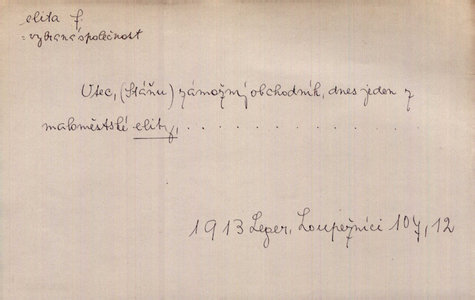 elita f.
= vybraná společnost
Otec, (Stáňu) zámožný obchodník, dnes jeden z
maloměstské elity, . . . . . . . . . . . . . .
1913 Leger, Loupežníci 107, 12